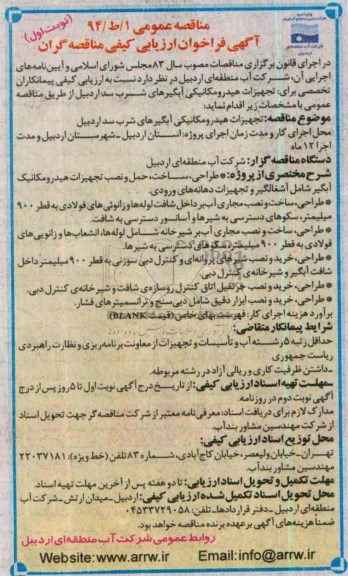 مناقصه عمومی ۱/ط/۹۴
(نوبت اول)
آگهی فراخوان ارزیابی کیفی مناقصه گران
در اجرای قانون برگزاری مناقصات مصوب سال ۸۳ مجلس شورای اسلامی و آیین‌نامه‌های
اجرایی آن، شرکت آب منطقه‌ای اردبیل در نظر دارد نسبت به ارزیابی کیفی پیمانکاران
تخصصی برای: تجهیزات هیدرومکانیکی آبگیرهای شرب سد اردبیل از طریق مناقصه
عمومی با مشخصات زیر اقدام نماید:
موضوع مناقصه: تجهیزات هیدرومکانیکی آبگیرهای شرب سد اردبیل
محل اجرای کار و مدت زمان اجرای پروژه: استان اردبیل - شهرستان اردبیل و مدت
اجرا ۱۲ ماه
دستگاه مناقصه گزار: شرکت آب منطقه‌ای اردبیل
شرح مختصری از پروژه: *طراحی، ساخت، حمل و نصب تجهیزات هیدرومکانیک
آبگیر شامل آشغالگیر و تجهیزات دهانه‌های ورودی.
*طراحی، ساخت و نصب مجاری آب بر داخل شافت لوله‌ها و زانوئی‌های فولادی به قطر ۹۰۰
میلیمتر، سکوهای دسترسی به شیرها و آسانور دسترسی به شافت.
*طراحی، ساخت و نصب مجاری آب بر شیرخانه شامل لوله‌ها، انشعاب‌ها و زانویی‌های
فولادی به قطر ۹۰۰ میلیمتر، سکوهای دسترسی به شیرها.
*طراحی، خرید و نصب شیرهای پروانه‌ای و کنترل دبی سوزنی به قطر ۹۰۰ میلیمتر داخل
شافت آبگیر و شیرخانه‌ی کنترل دبی.
*طراحی، خرید و نصب جرثقیل اتاق کنترل روسازه‌ی شافت و شیرخانه‌ی کنترل دبی.
*طراحی، خرید و نصب ابزار دقیق شامل دبی سنج و ترانسمیترهای فشار.
برآورد هزینه اجرای کار: فهرست بهای خاص (قیمت BLANK)
شرایط پیمانکار متقاضی:
حداقل رتبه ۵ رشته آب و تأسیسات و تجهیزات از معاونت برنامه‌ریزی و نظارت راهبردی
ریاست جمهوری
-داشتن ظرفیت کاری و ریالی آزاد در رشته مربوطه.
-مهلت تهیه اسناد ارزیابی کیفی: از تاریخ درج آگهی نوبت اول تا ۵ روز پس از درج
آگهی نوبت دوم در روزنامه.
مدارک لازم برای دریافت اسناد: معرفی نامه معتبر از شرکت مناقصه گر جهت تحویل اسناد
از شرکت مهندسین مشاور بندآب.
محل توزیع اسناد ارزیابی کیفی:
تهران - خیابان ولیعصر، خیابان کاج آبادی، شماره ۸۳ تلفن (خط ویژه): ۲۲۰۳۷۱۸۱
مهندسین مشاور بندآب.
مهلت تکمیل و تحویل اسناد ارزیابی: تا دو هفته پس از آخرین مهلت تهیه اسناد.
محل تحویل اسناد تکمیل شده ارزیابی کیفی: اردبیل - میدان ارتش - شرکت آب
منطقه‌ای اردبیل - دفتر قراردادها - تلفن: ۰۴۵۳۳۷۲۹۰۵۸
ضمناً هزینه‌های آگهی بر عهده برنده مناقصه خواهد بود.
روابط عمومی شرکت آب منطقه‌ای اردبیل
Website: www.arrw.ir Email: info@arrw.ir